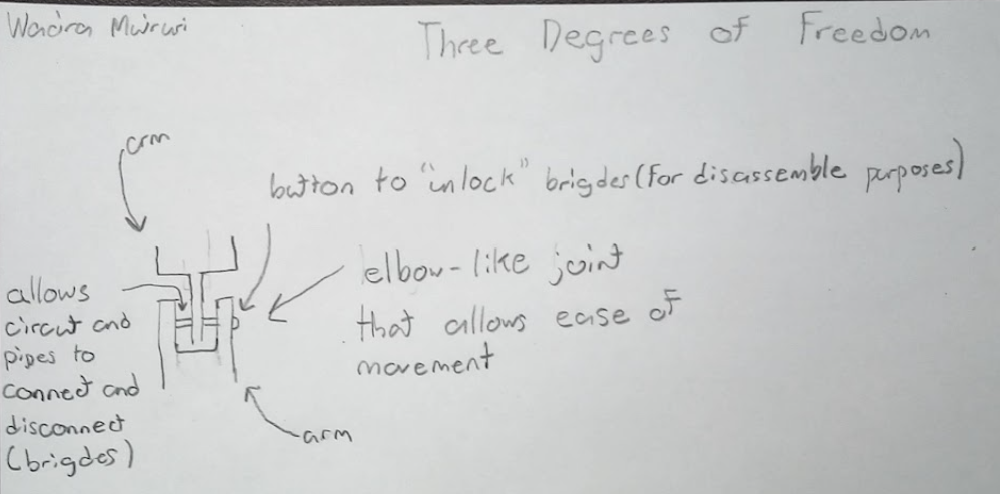 Three Degrees of Freedom
arm
button to "unlock" brigdes (for disassemble purposes)
elbow-like joint
that allows ease of
movement
allows
circut and
pipes to
connect and
disconnect
(brigdes)
arm